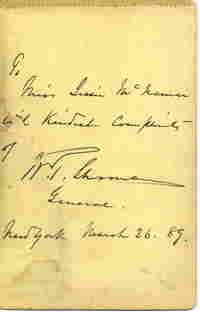 To
Miss Lissie McNamee
with Kindest Compliments
of
W.T. Sherman
General.
New York March 26. 89.